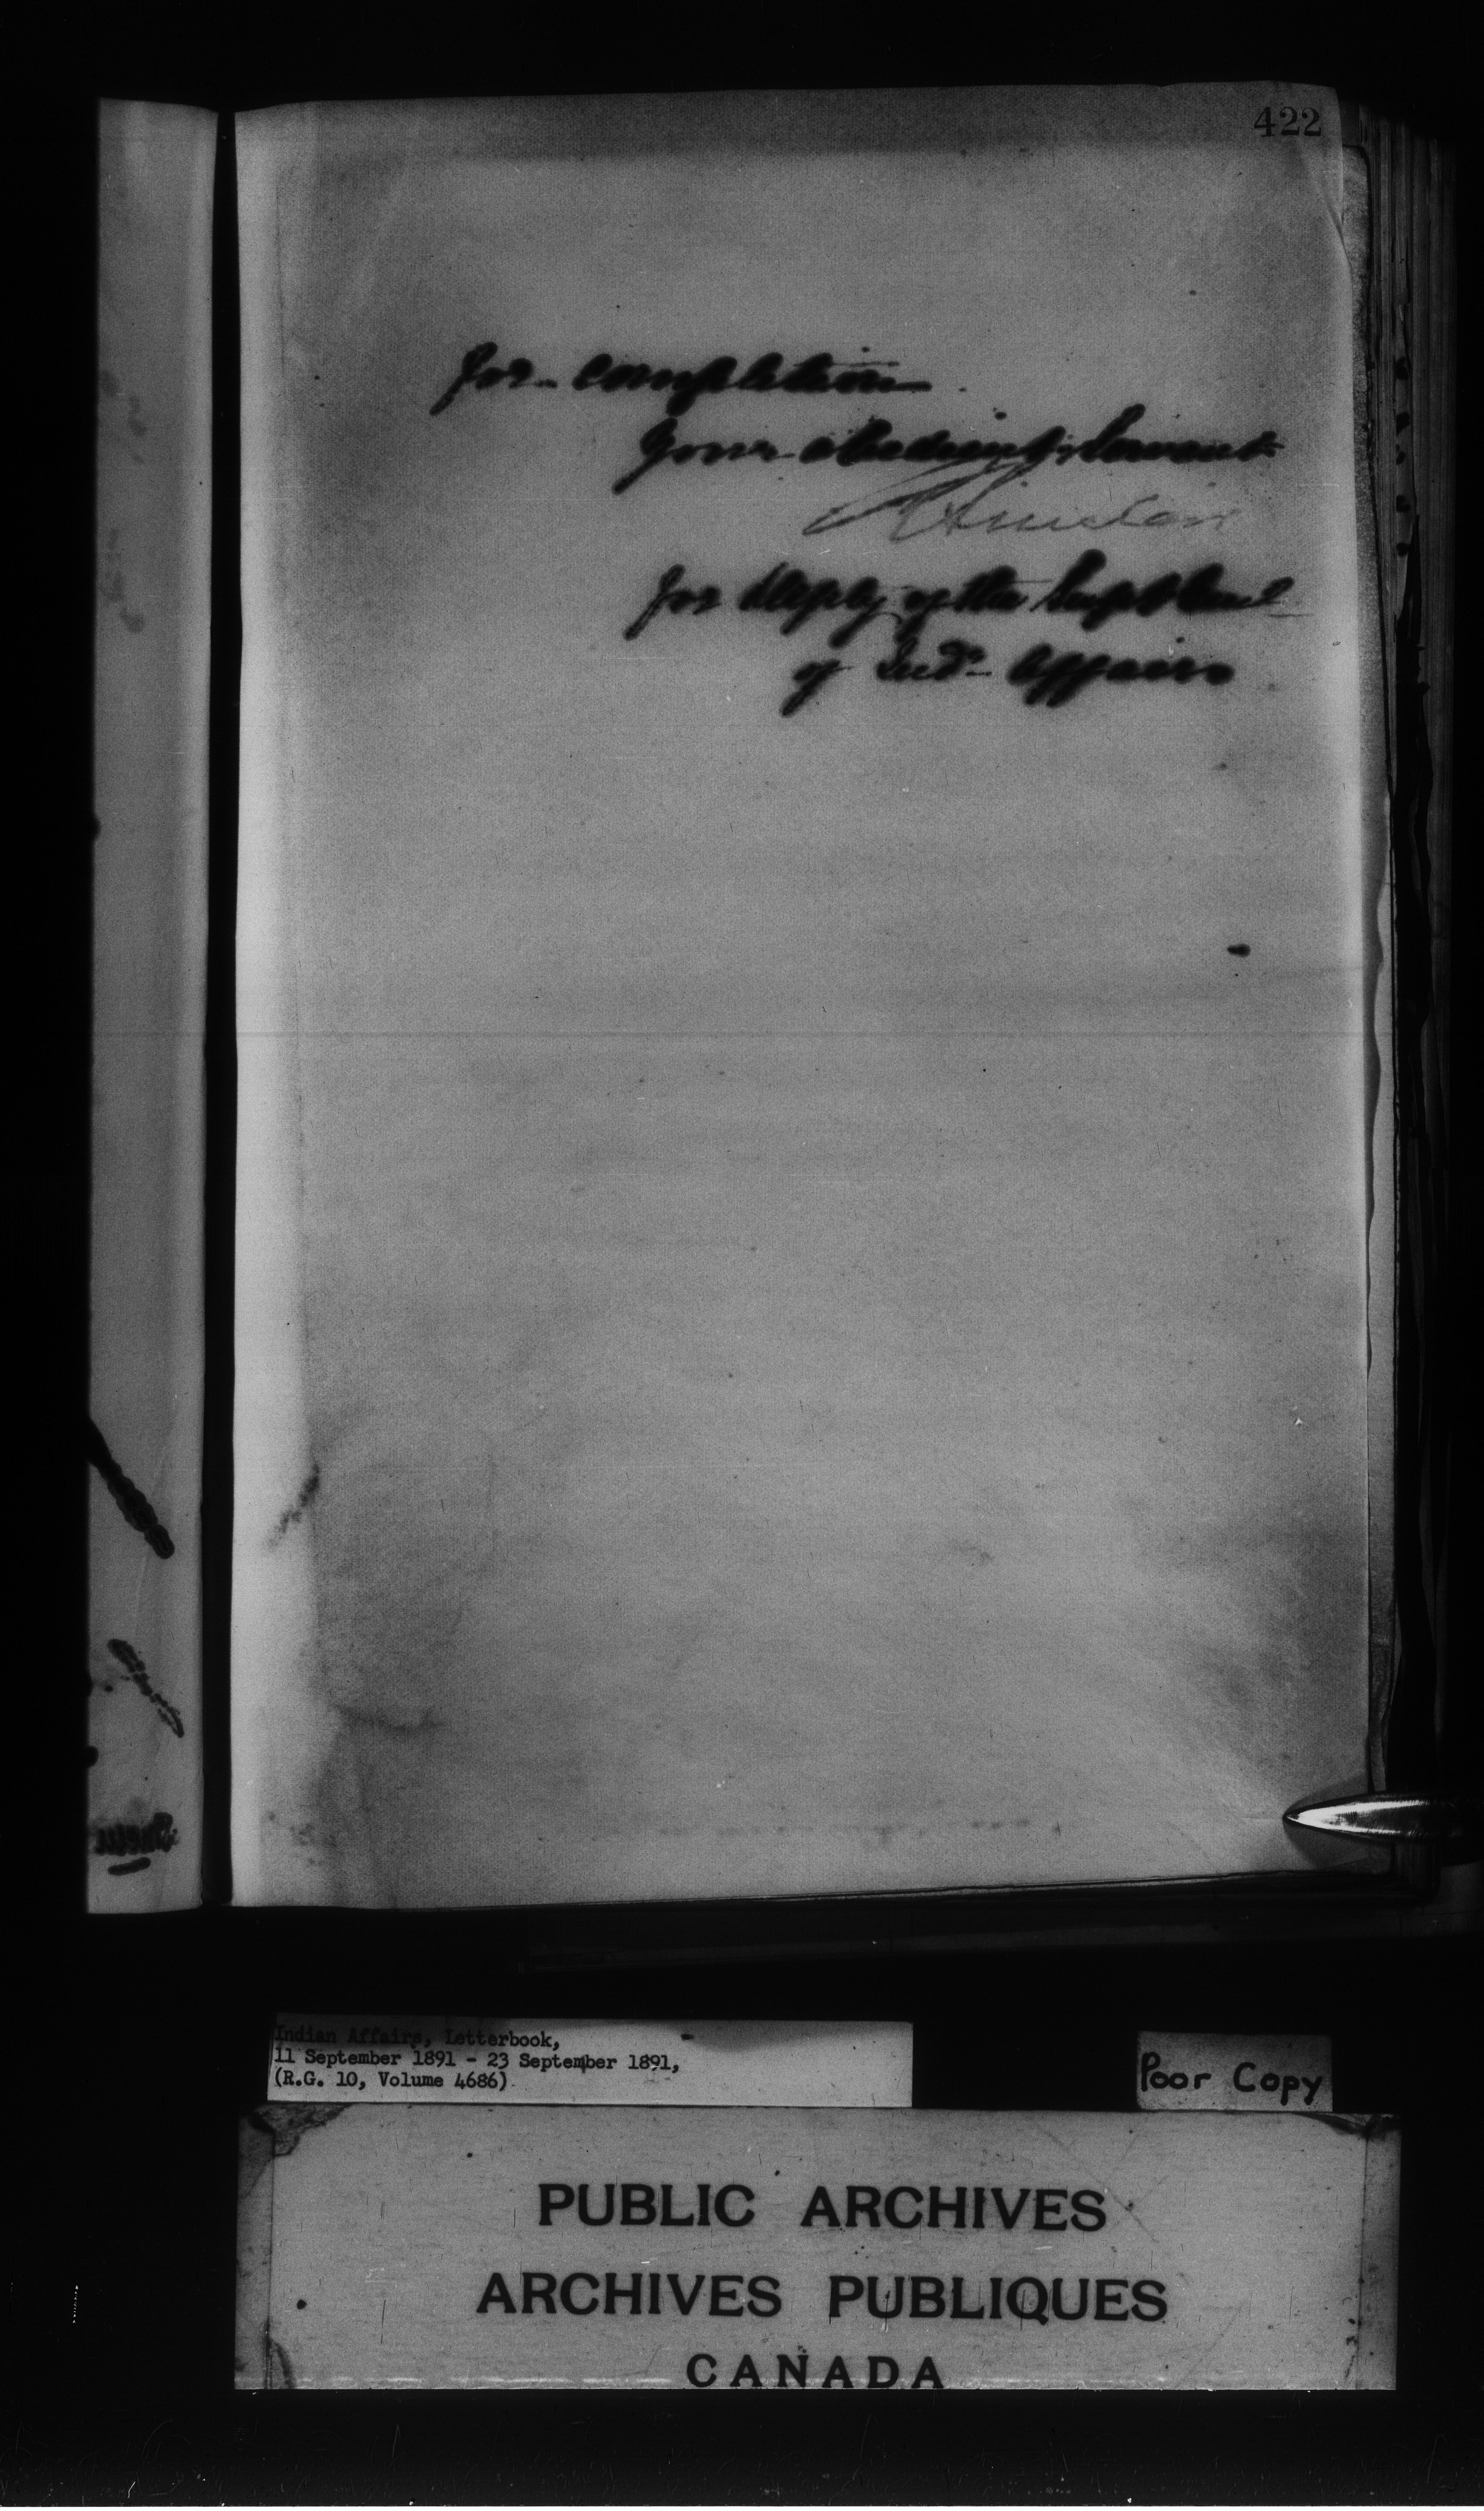 422
for completion
Your obedient servant
R Sinclair
for Deputy of the Supt Genl
of Indn Affairs
Indian Affairs, Letterbook,
11 September 1891 - 23 September 1891,
(R.G. 10, Volume 4686)
Poor Copy
PUBLIC ARCHIVES
ARCHIVES PUBLIQUES
CANADA